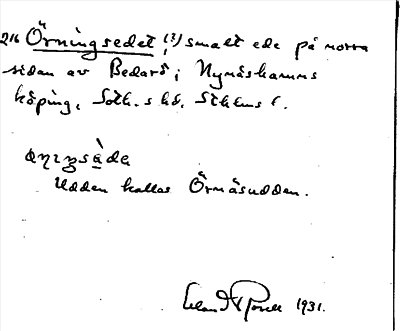 216 Örningsedet (?) smalt ede på norra
sidan av Bedarö, Nynäshamns
köping, Soth. s hd. Sthlms l.
Udden kallas Örnäsudden.
1931.